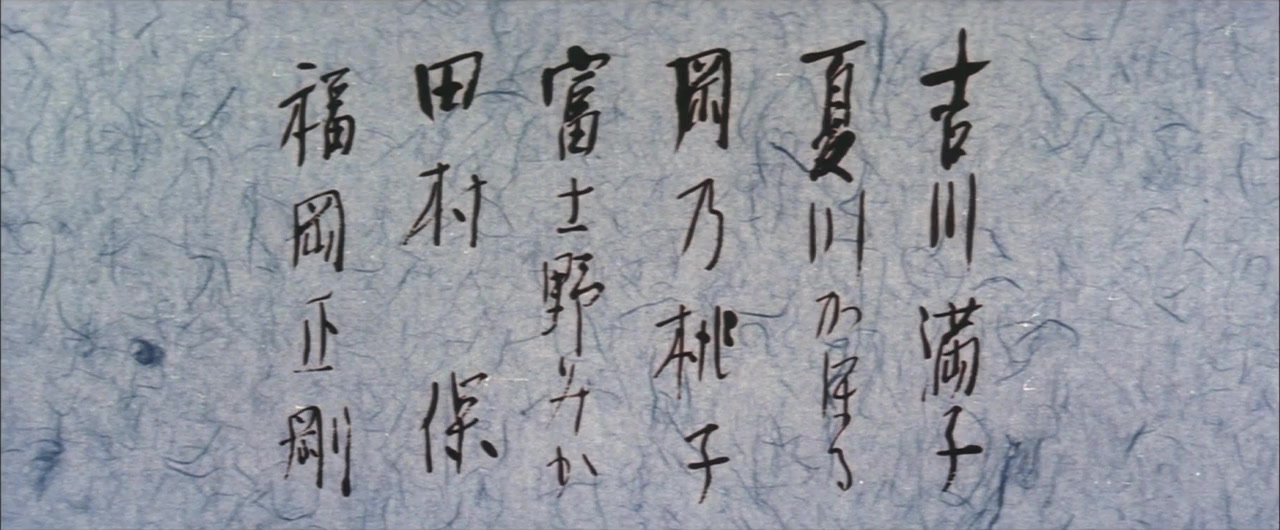 吉川満子
夏川かほる
岡乃桃子
富士野みか
田村保
福岡正剛